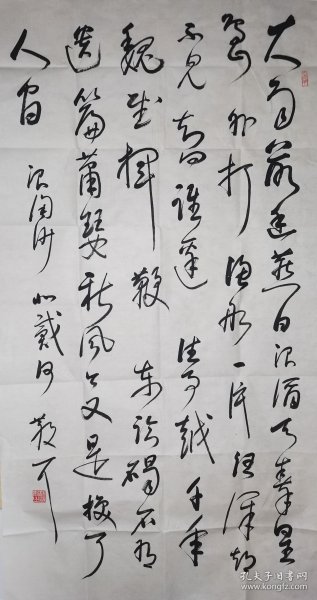 大雨落幽燕白浪滔天秦皇
島外打漁船一片汪洋都
不見知向誰邊往事越千年
魏武揮鞭東臨碣石有
遺篇蕭瑟秋風今又是換了
人間 浪淘沙 北戴河
孔夫子旧书网